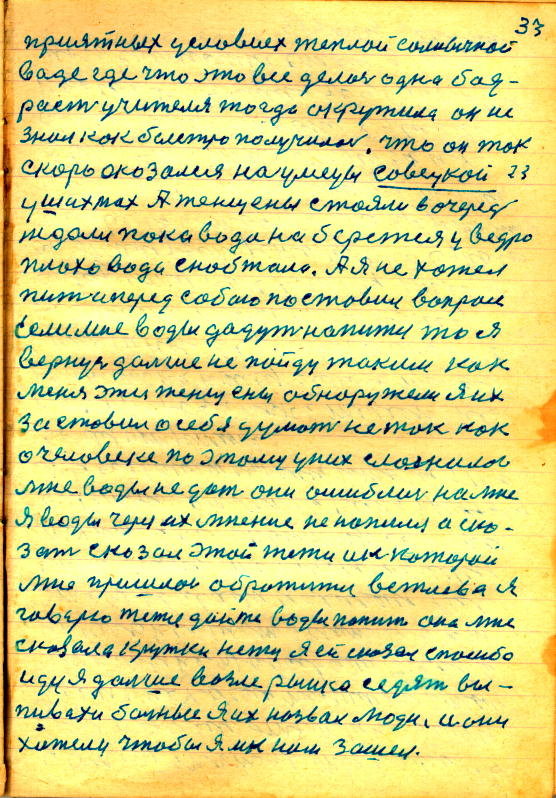 33
приятных условиех теплой солнычной
ваде где что это все делог одна бод-
раст учителя тогда окружила он не
знал как быстро получилос, что он ток
скоро оказался на улецы совецкой 23
у шахтах А женщены стояли в очеред
ждали пока вода наберется у ведро
плохо вода снобжала. А я не хотел
пит и перед собаю поставил вапрос
если мне воды дадут напитця то я
вернус далше не пойду таким как
меня эти женщены обнаружели я их
заставил о себя думат не ток как
о человеке поэтому у них сложилос
мне воды не дат они ошиблис на мне
я воды через их мнение не напился а ска-
зат сказал этой тети имя каторой
мне пришлос обротитця ветлева я
говарю тети дайте воды попит она мне
сказала крушки нету я ей сказал спосибо
иду я далше возле рынка седят вы-
пивахи болные я их назвал люди, и они
хотели чтобы я к ним зашел.